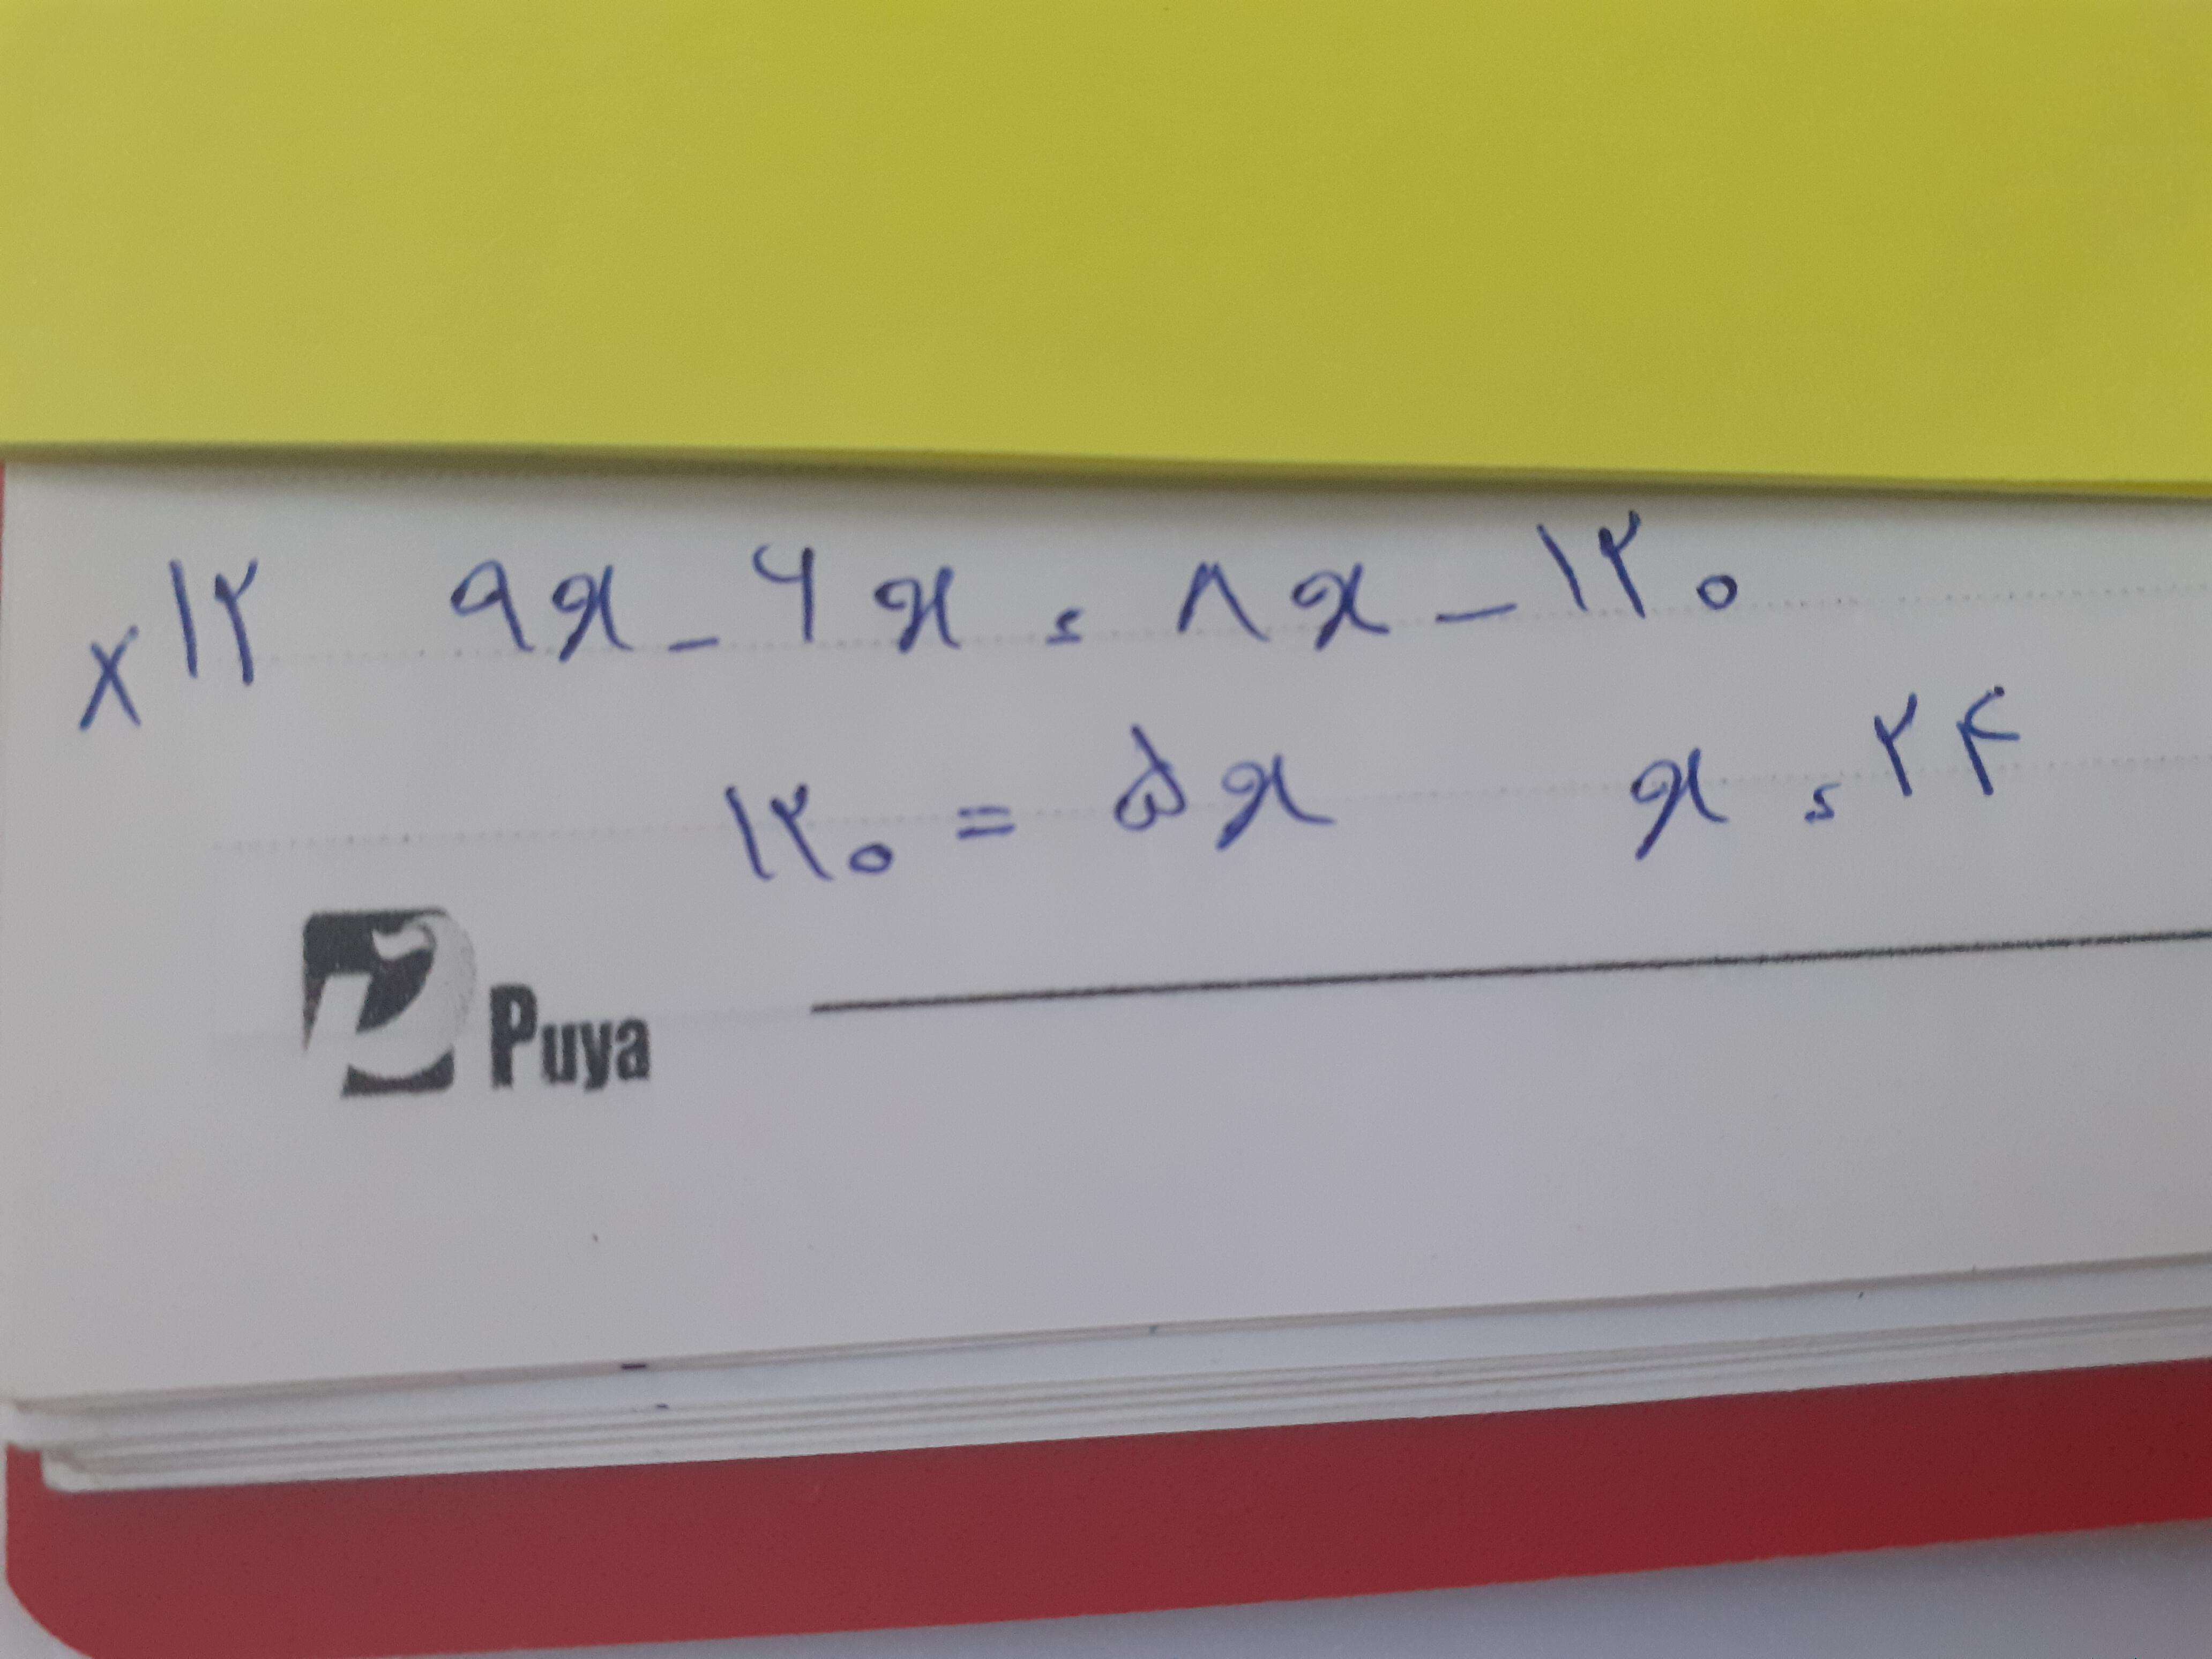 ×۱۲ ۹x - ۶x = ۸x - ۱۲۰
۱۲۰ = ۵x x = ۲۴
Puya